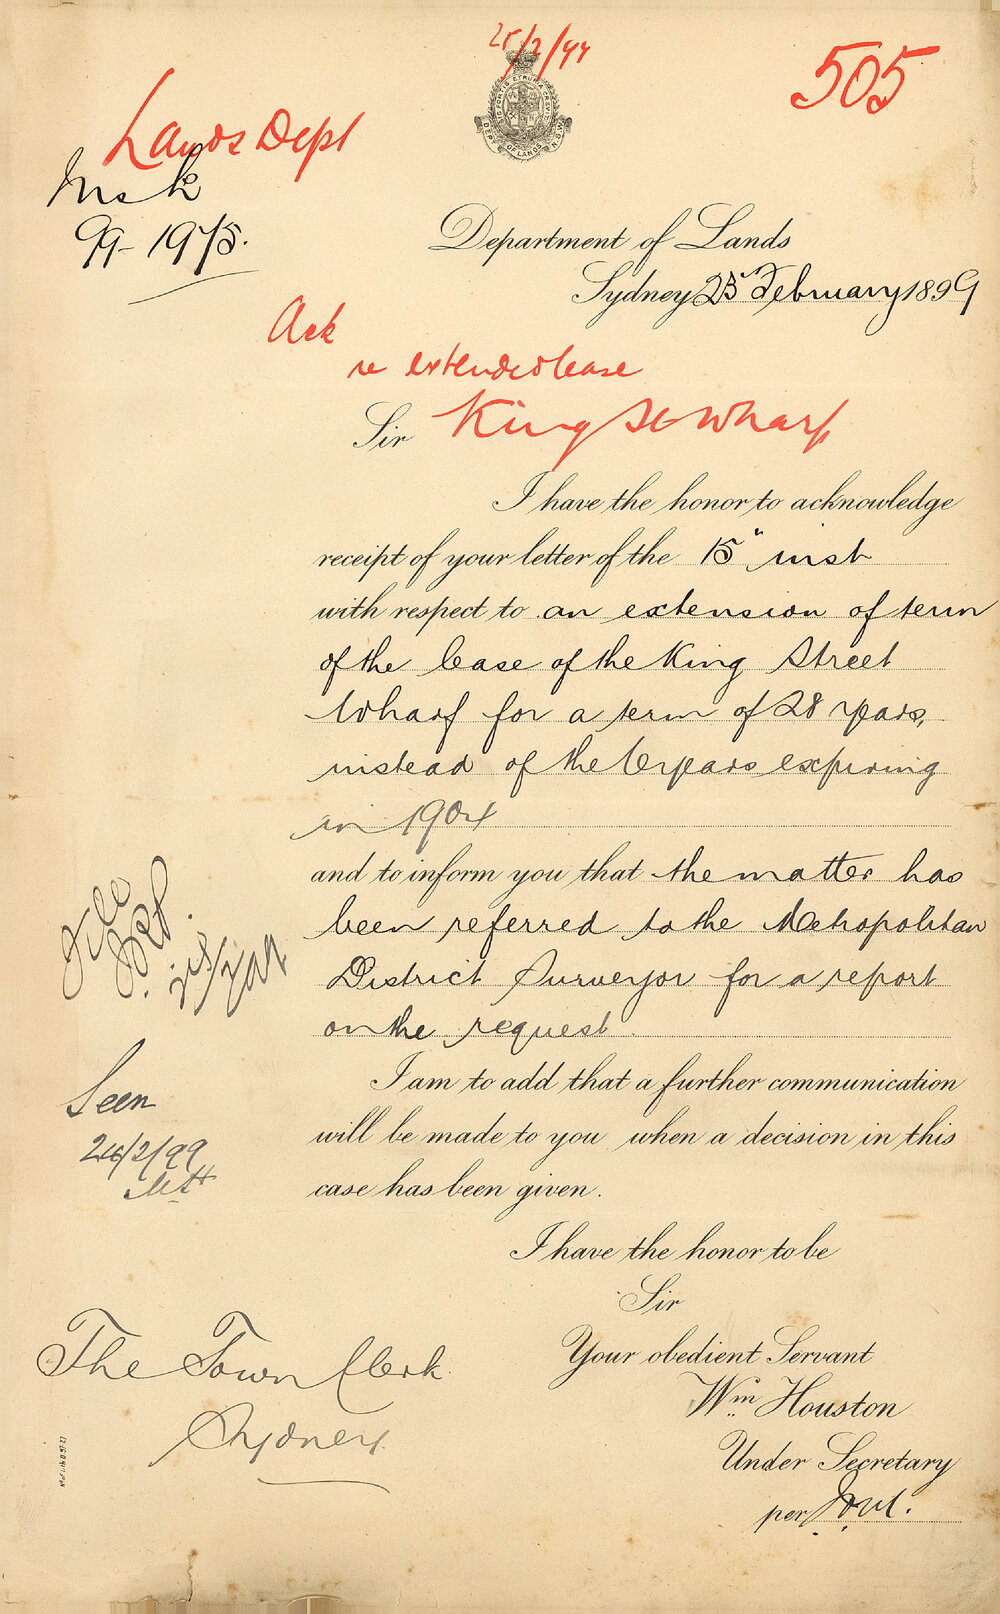 25/2/99
505
Lands Dept
99-1975.
Department of Lands
Sydney 25 February 1899
Ack
re extended lease
King St Wharf
Sir
I have the honor to acknowledge
receipt of your letter of the 15" inst
with respect to an extension of term
of the lease of the King Street
Wharf for a term of 28 years,
instead of the 6 years expiring
in 1904
and to inform you that the matter has
been referred to the Metropolitan
District Surveyor for a report
on the request.
I am to add that a further communication
will be made to you when a decision in this
case has been given.
File
Seen
I have the honor to be
Sir
Your obedient Servant
Wm Houston
Under Secretary
per
The Town Clerk
Sydney